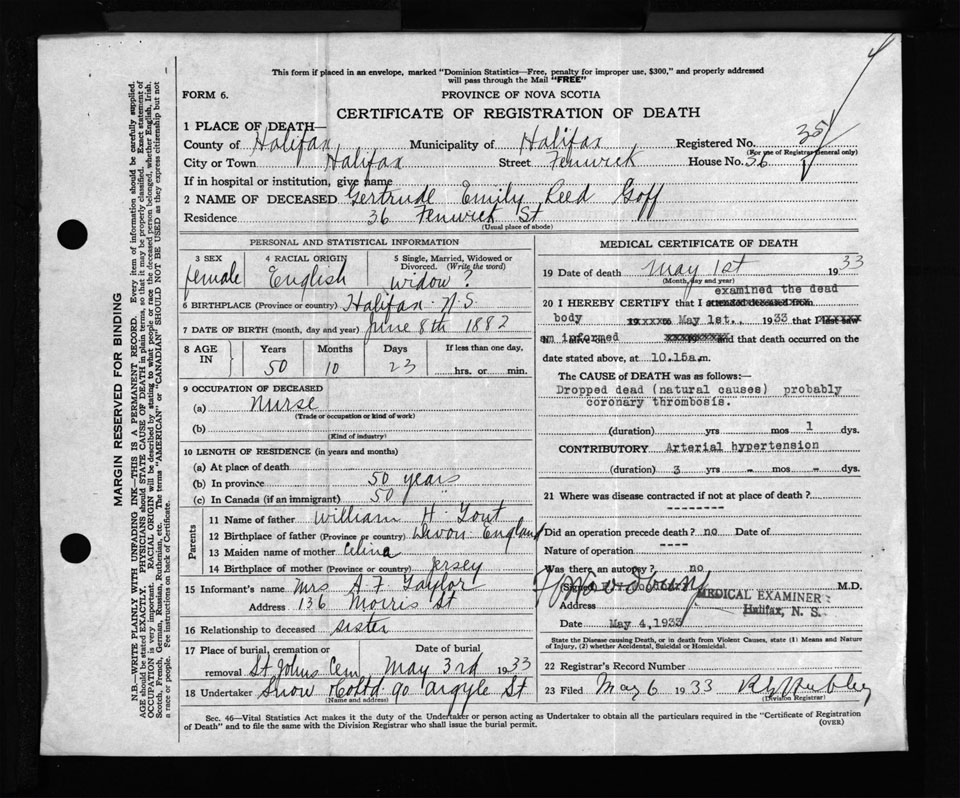 This form if placed in an envelope, marked "Dominion Statistics—Free, penalty for improper use, $300," and properly addressed
will pass through the Mail "FREE"
FORM 6.
PROVINCE OF NOVA SCOTIA
CERTIFICATE OF REGISTRATION OF DEATH
1 PLACE OF DEATH—
County of Halifax Municipality of Halifax Registered No. 351
(For use of Registrar General only)
City or Town Halifax Street Fenwick House No. 36
If in hospital or institution, give name
2 NAME OF DECEASED Gertrude Emily Reed Goff
Residence 36 Fenwick St
(Usual place of abode)
PERSONAL AND STATISTICAL INFORMATION
3 SEX 4 RACIAL ORIGIN 5 Single, Married, Widowed or
Divorced. (Write the word)
female English widow?
6 BIRTHPLACE (Province or country) Halifax N.S.
7 DATE OF BIRTH (month, day and year) June 8th 1882
8 AGE IN Years Months Days If less than one day,
50 10 23 hrs. or min.
9 OCCUPATION OF DECEASED
(a) Nurse
(Trade or occupation or kind of work)
(b)
(Kind of industry)
10 LENGTH OF RESIDENCE (in years and months)
(a) At place of death
(b) In province 50 years
(c) In Canada (if an immigrant) 50 "
Parents
11 Name of father William H.
12 Birthplace of father (Province or country) Devon England
13 Maiden name of mother Celina
14 Birthplace of mother (Province or country) Jersey
15 Informant's name Mrs A F Taylor
Address 136 Morris St
16 Relationship to deceased sister
17 Place of burial, cremation or Date of burial
removal St Johns Cem May 3rd 1933
18 Undertaker Snow & Co Ltd 90 Argyle St
(Name and address)
MEDICAL CERTIFICATE OF DEATH
19 Date of death May 1st 1933
(Month, day and year)
examined the dead
20 I HEREBY CERTIFY that I attended deceased from
body 19 to May 1st. 1933 that I last saw
am informed and that death occurred on the
date stated above, at 10.15a.m.
The CAUSE of DEATH was as follows:—
Dropped dead (natural causes) probably
coronary thrombosis.
(duration) yrs mos 1 dys.
CONTRIBUTORY Arterial hypertension
(duration) 3 yrs - mos - dys.
21 Where was disease contracted if not at place of death?
--------
Did an operation precede death? no Date of
Nature of operation ----
Was there an autopsy? no
Signed M.D.
Address MEDICAL EXAMINER
Halifax, N. S.
Date May 4, 1933
State the Disease causing Death, or in death from Violent Causes, state (1) Means and Nature
of Injury, (2) whether Accidental, Suicidal or Homicidal.
22 Registrar's Record Number
23 Filed May 6 1933
(Division Registrar)
Sec. 46—Vital Statistics Act makes it the duty of the Undertaker or person acting as Undertaker to obtain all the particulars required in the "Certificate of Registration
of Death" and to file the same with the Division Registrar who shall issue the burial permit.
(OVER)
MARGIN RESERVED FOR BINDING
N.B.—WRITE PLAINLY WITH UNFADING INK—THIS IS A PERMANENT RECORD. Every item of information should be carefully supplied.
AGE should be stated EXACTLY. PHYSICIANS should STATE CAUSE OF DEATH in plain terms, so that it may be properly classified. Exact statement of
OCCUPATION is very important. RACIAL ORIGIN will be described by stating to what people or race the deceased person belonged, whether English, Irish,
Scotch, French, German, Russian, Ruthenian, etc. The terms "AMERICAN" or "CANADIAN" SHOULD NOT BE USED as they express citizenship but not
a race or people. See instructions on back of Certificate.